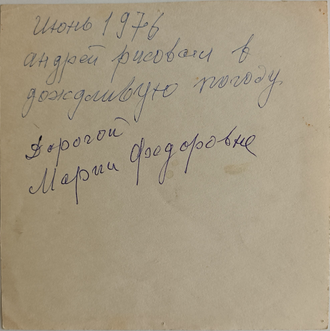 Июнь 1976
андрей рисовал в
дождливую погоду.
Дорогой
Марии Федоровне